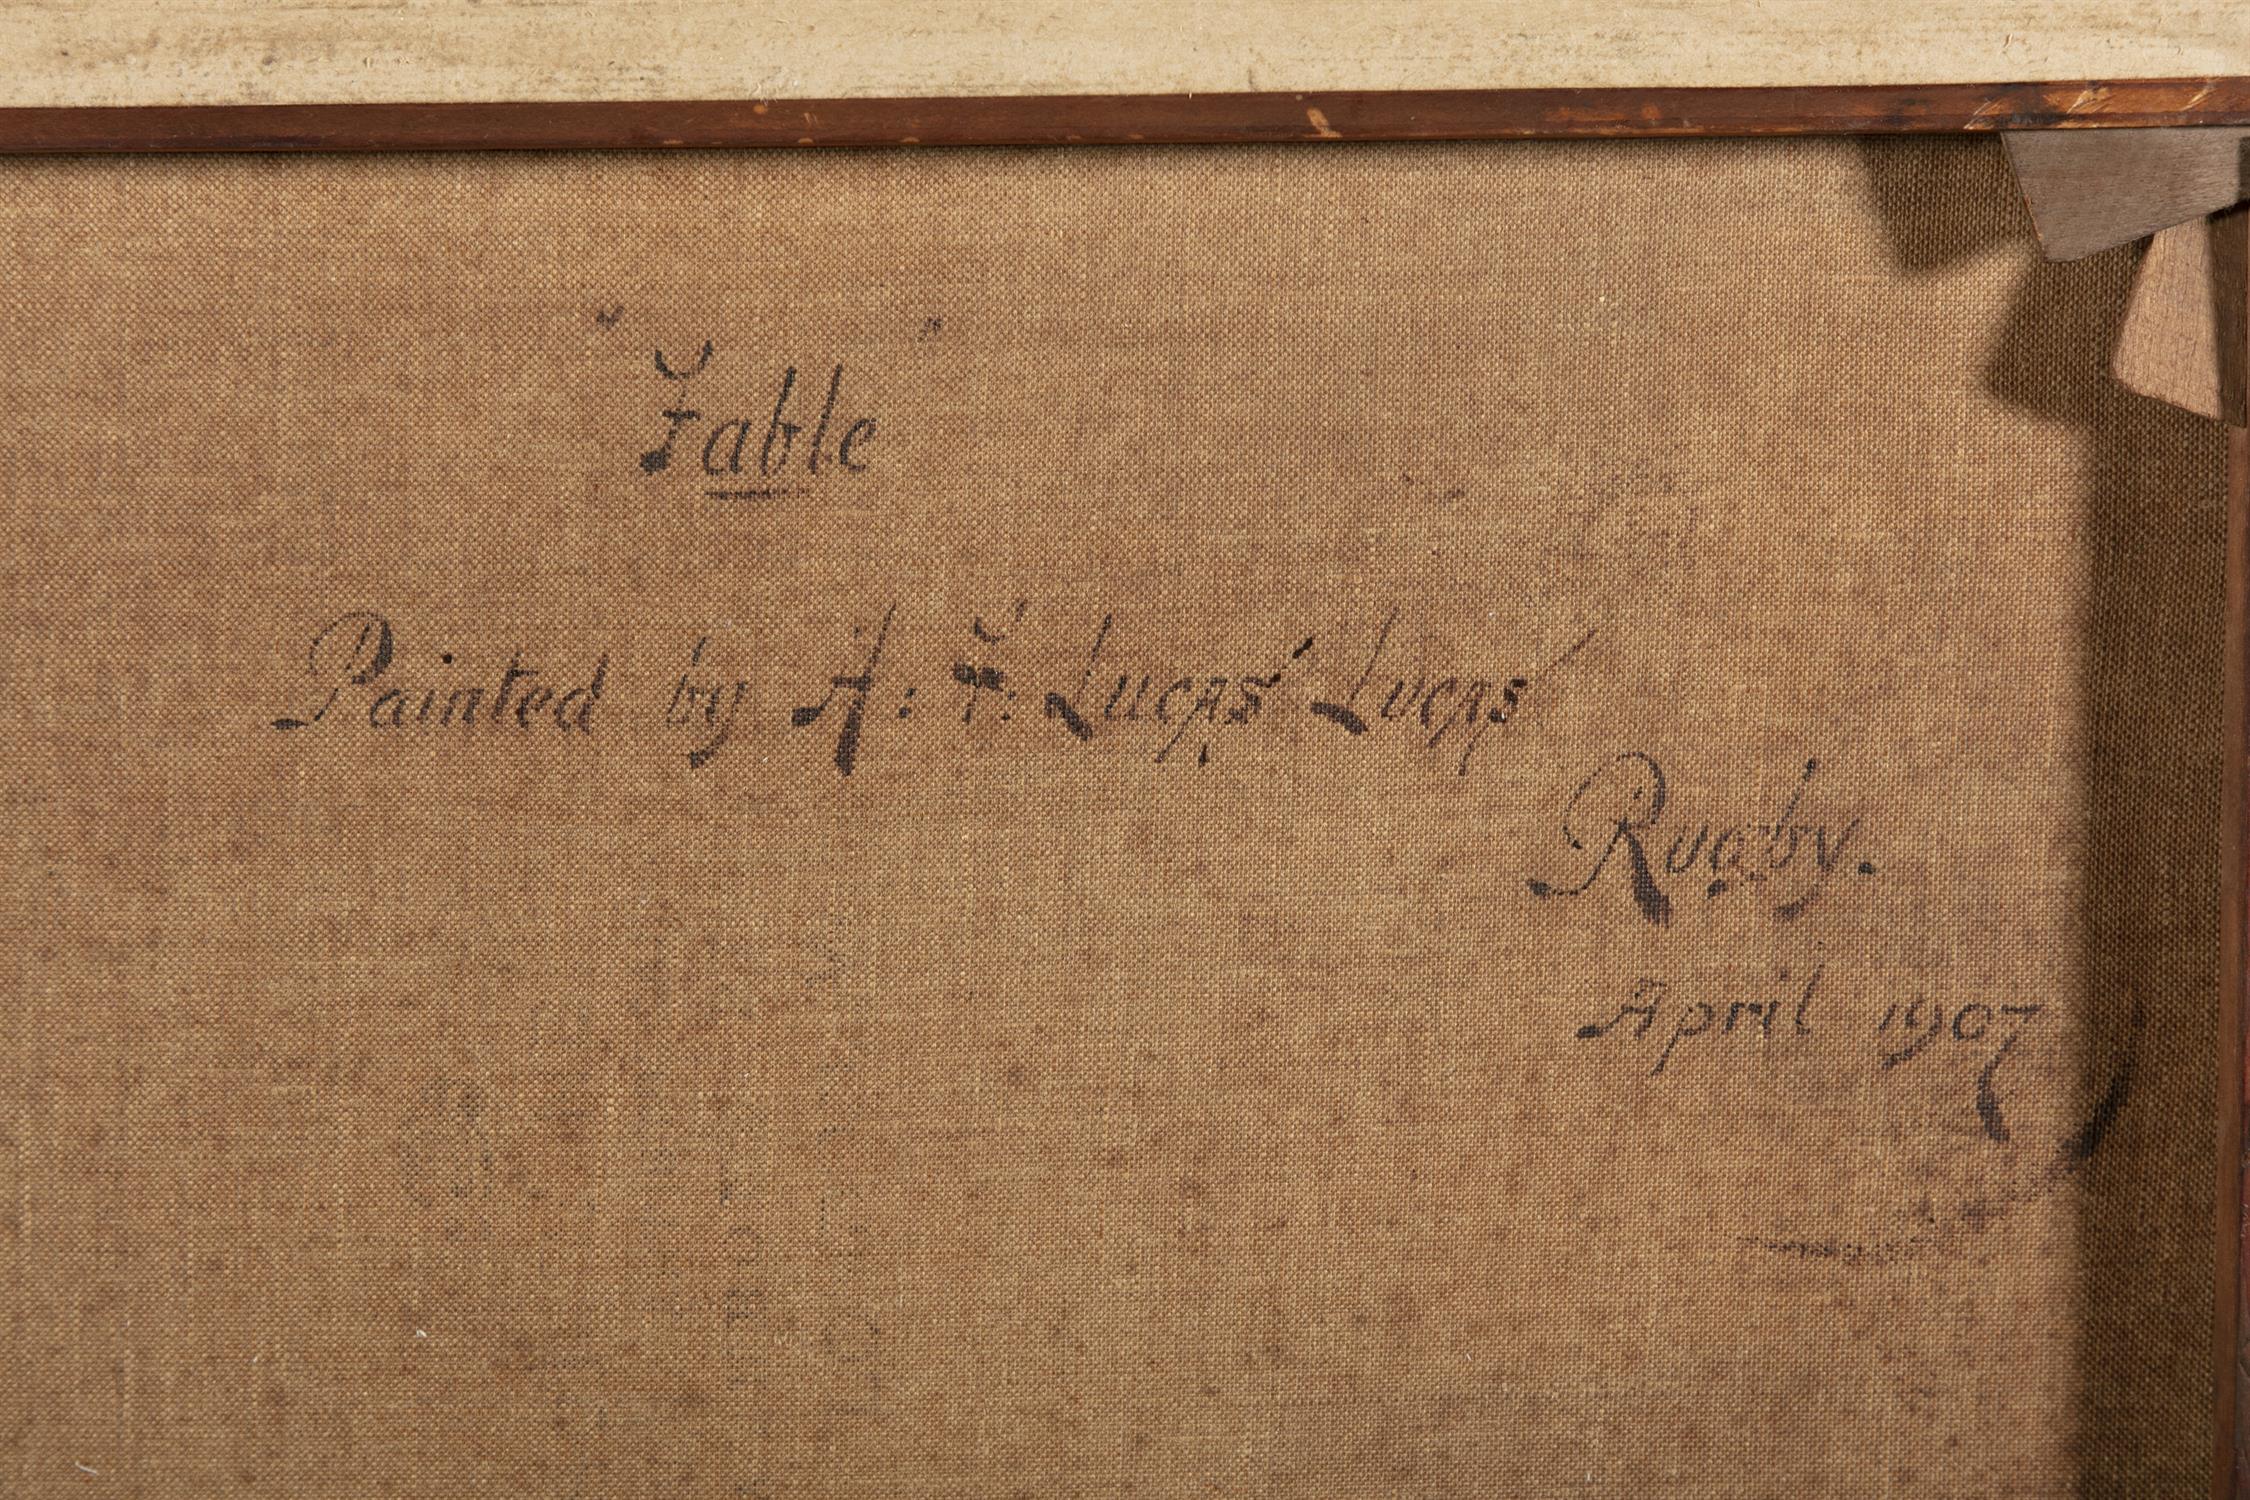 "Fable"
Painted by A: F: Lucas Lucas
Rugby.
April 1907